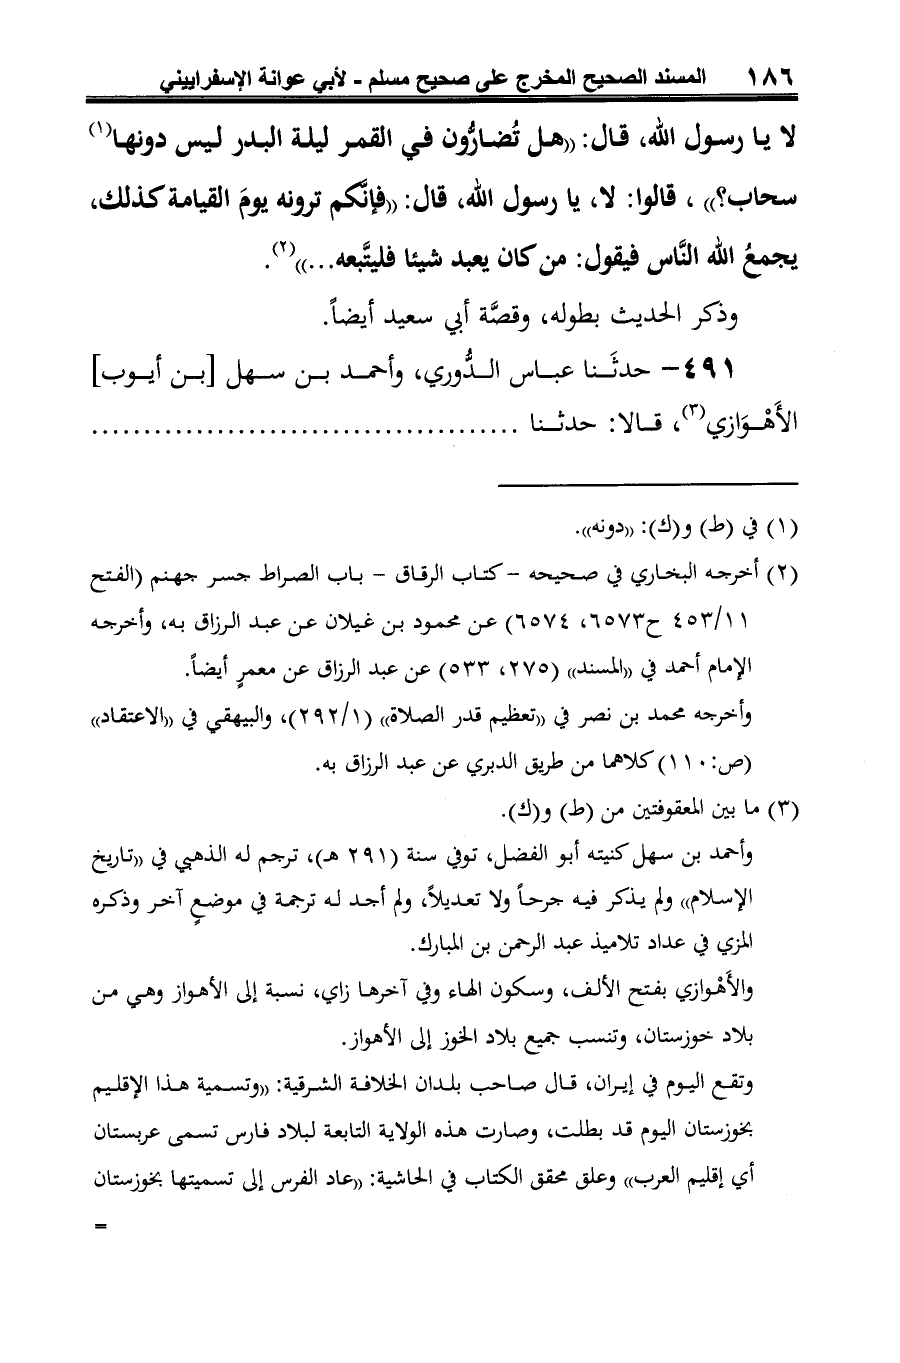 ١٨٦ المسند الصحيح المخرج على صحيح مسلم - لأبي عوانة الإسفراييني
لا يا رسول الله، قال: ((هل تُضارُّون في القمر ليلة البدر ليس دونها(١)
سحاب؟)) ، قالوا: لا، يا رسول الله، قال: ((فإنَّكم ترونه يومَ القيامة كذلك،
يجمعُ الله النَّاس فيقول: من كان يعبد شيئا فليتَّبعه...))(٢).
وذكر الحديث بطوله، وقصَّة أبي سعيد أيضاً.
٤٩١- حدثَنا عباس الدُّوري، وأحمد بن سهل [بن أيوب]
الأَهْوَازي(٣)، قالا: حدثنا .........................................
(١) في (ط) و(ك): ((دونه)).
(٢) أخرجه البخاري في صحيحه -كتاب الرقاق - باب الصراط جسر جهنم (الفتح
٤٥٣/١١ ح٦٥٧٣، ٦٥٧٤) عن محمود بن غيلان عن عبد الرزاق به، وأخرجه
الإمام أحمد في ((المسند)) (٢٧٥، ٥٣٣) عن عبد الرزاق عن معمرٍ أيضاً.
وأخرجه محمد بن نصر في ((تعظيم قدر الصلاة)) (٢٩٢/١)، والبيهقي في ((الاعتقاد))
(ص: ١١٠) كلاهما من طريق الدبري عن عبد الرزاق به.
(٣) ما بين المعقوفتين من (ط) و(ك).
وأحمد بن سهل كنيته أبو الفضل، توفي سنة (٢٩١ هـ)، ترجم له الذهبي في ((تاريخ
الإسلام)) ولم يذكر فيه جرحاً ولا تعديلاً، ولم أجد له ترجمة في موضعٍ آخر وذكره
المزي في عداد تلاميذ عبد الرحمن بن المبارك.
والأَهْوازي بفتح الألف، وسكون الهاء وفي آخرها زاي، نسبة إلى الأهواز وهي من
بلاد خوزستان، وتنسب جميع بلاد الخوز إلى الأهواز.
وتقع اليوم في إيران، قال صاحب بلدان الخلافة الشرقية: ((وتسمية هذا الإقليم
بخوزستان اليوم قد بطلت، وصارت هذه الولاية التابعة لبلاد فارس تسمى عربستان
أي إقليم العرب)) وعلق محقق الكتاب في الحاشية: ((عاد الفرس إلى تسميتها بخوزستان
=